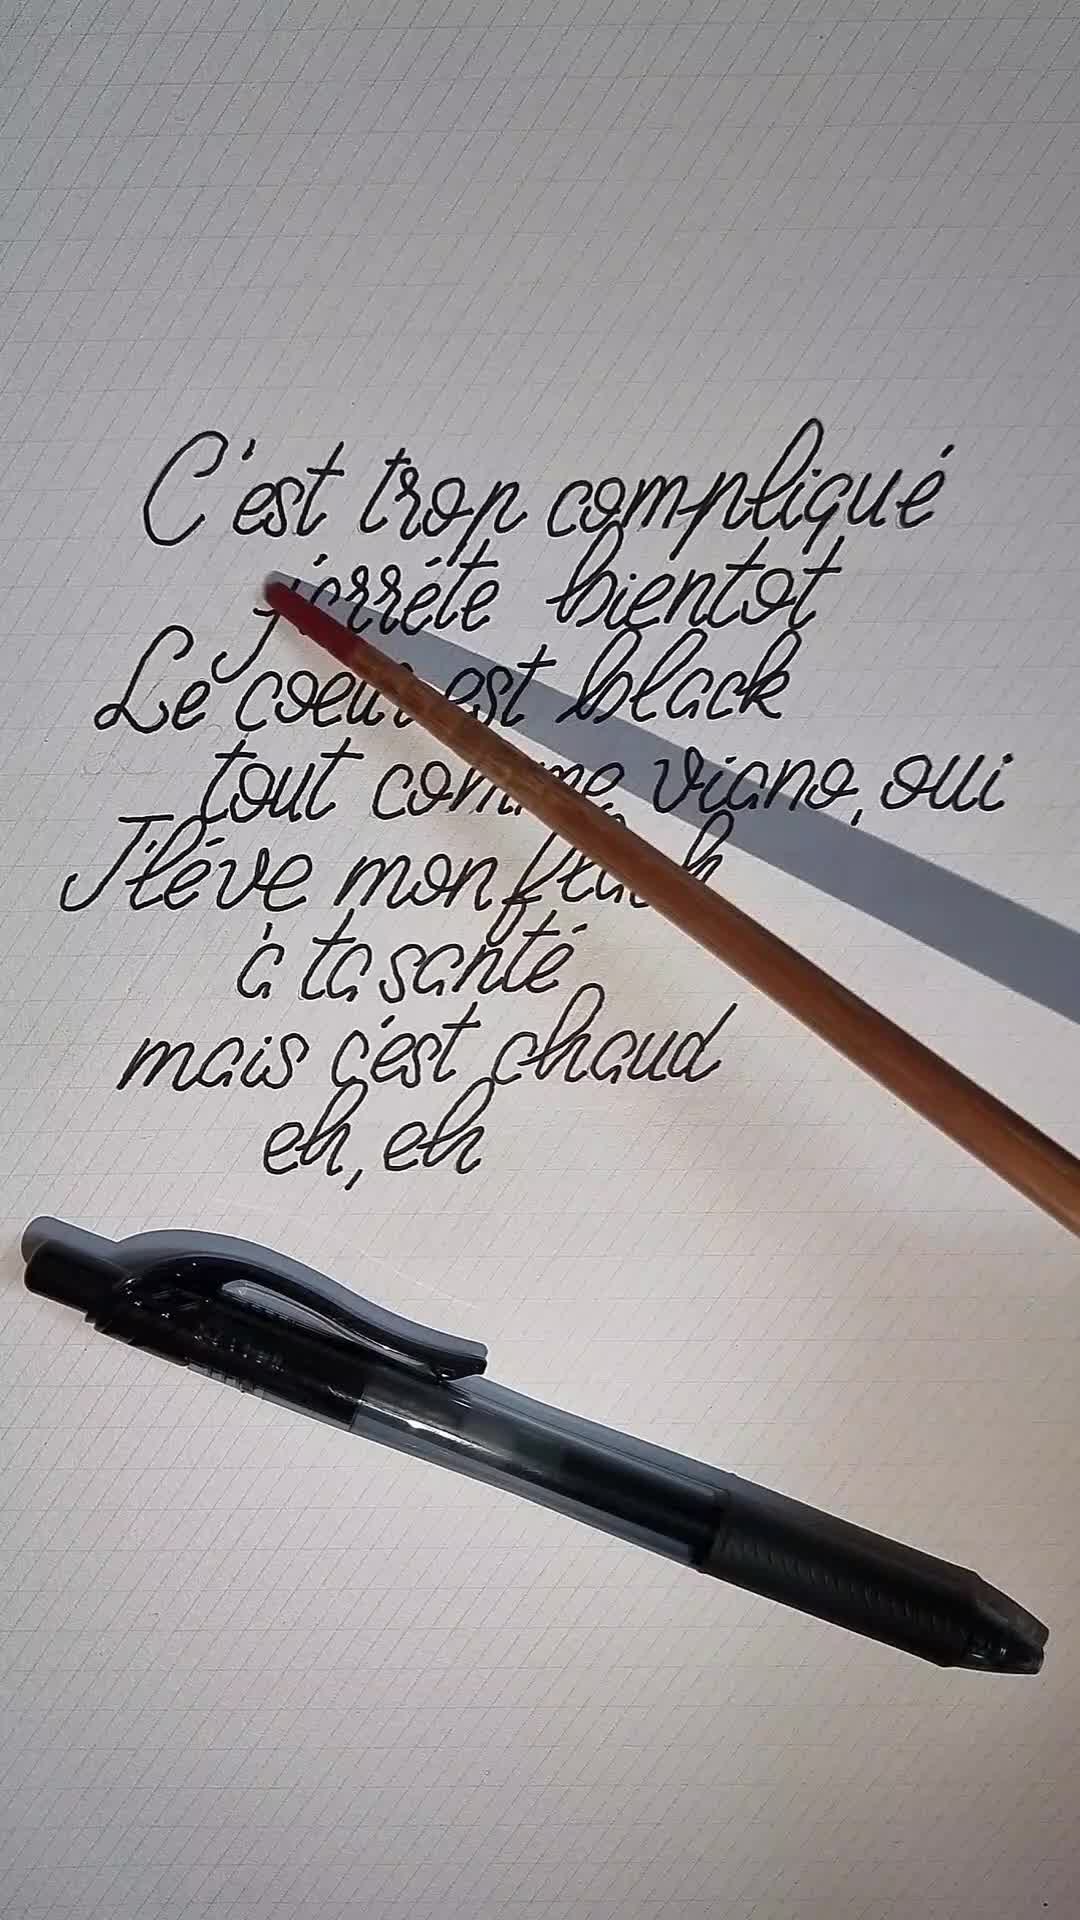 C'est trop compliqué
j'arréte bientot
Le coeur est black
tout comme viano, oui
J'léve mon
à ta santé
mais c'est chaud
eh, eh